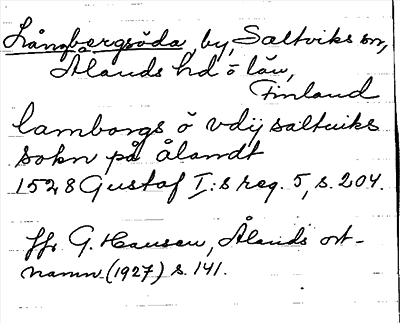 Långbergsöda, by, Saltviks sn,
Ålands hd o län,
Finland
lamborgs ö vdij saltuiks
sokn på ålandt
1528 Gustaf I:s reg. 5, s. 204.
Jfr G. Hausen, Ålands ort-
namn (1927) s. 141.